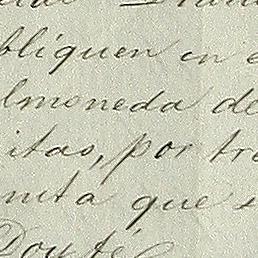 bliquen en e
lmoneda de
itas, por tre
nta que s
Doy fé